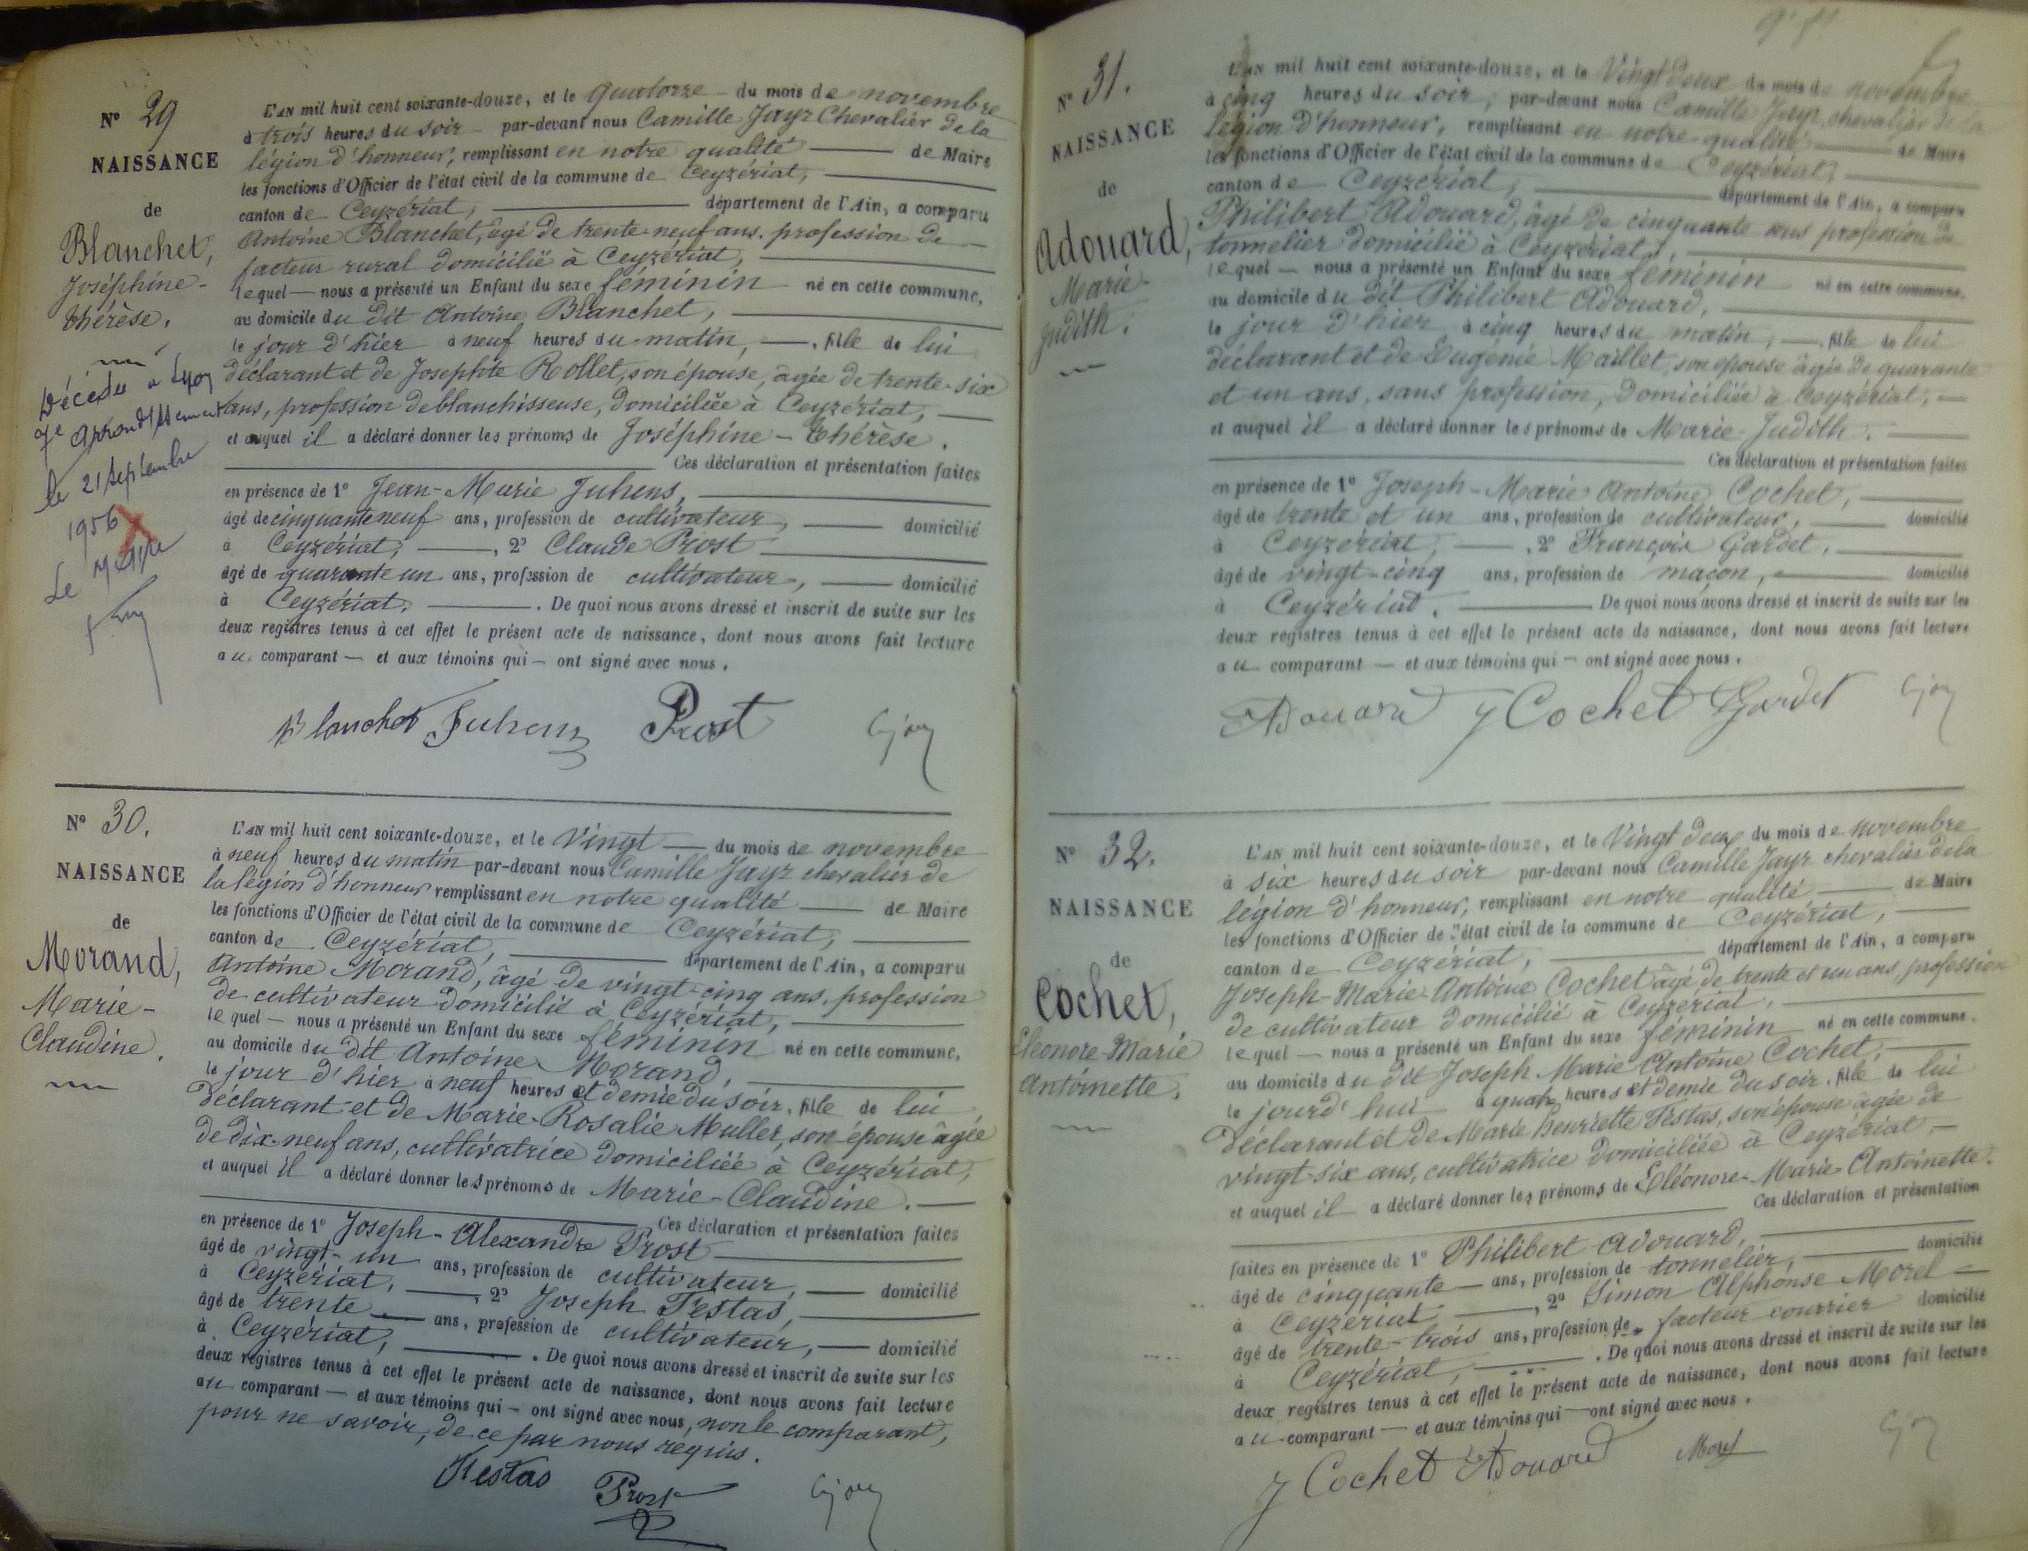 N° 29
NAISSANCE
de
Blanchet,
Joséphine-
thérèse.
Décédée à Lyon
7e arrondissement
le 21 septembre
1956
Le
L'AN mil huit cent soixante-douze, et le quatorze du mois de novembre
à trois heures du soir par-devant nous Camille Jayr Chevalier de la
légion d'honneur, remplissant en notre qualité de Maire
les fonctions d'Officier de l'état civil de la commune de Ceyzériat,
canton de Ceyzériat, département de l'Ain, a comparu
Antoine Blanchet, âgé de trente neuf ans, profession de
facteur rural domicilié à Ceyzériat,
lequel nous a présenté un Enfant du sexe féminin né en cette commune,
au domicile du dit Antoine Blanchet,
le jour d'hier à neuf heures du matin, fille de lui
déclarant et de Josephte Rollet, son épouse, âgée de trente-six
ans, profession de blanchisseuse, domiciliée à Ceyzériat,
et auquel il a déclaré donner les prénoms de Joséphine-thérèse.
Ces déclaration et présentation faites
en présence de 1° Jean-Marie Juhens,
âgé de cinquante neuf ans, profession de cultivateur, domicilié
à Ceyzériat, 2° Claude Prost
âgé de quarante un ans, profession de cultivateur, domicilié
à Ceyzériat. De quoi nous avons dressé et inscrit de suite sur les
deux registres tenus à cet effet le présent acte de naissance, dont nous avons fait lecture
au comparant et aux témoins qui ont signé avec nous.
Blanchet Juhens Prost
N° 30.
NAISSANCE
de
Morand,
Marie-
Claudine.
L'AN mil huit cent soixante-douze, et le Vingt du mois de novembre
à neuf heures du matin par-devant nous Camille Jayr chevalier de
la légion d'honneur remplissant en notre qualité de Maire
les fonctions d'Officier de l'état civil de la commune de Ceyzériat,
canton de Ceyzériat, département de l'Ain, a comparu
Antoine Morand, âgé de vingt-cinq ans, profession
de cultivateur domicilié à Ceyzériat,
lequel nous a présenté un Enfant du sexe féminin né en cette commune,
au domicile du dit Antoine Morand,
le jour d'hier à neuf heures et demie du soir, fille de lui
déclarant et de Marie-Rosalie Muller, son épouse âgée
de dix-neuf ans, cultivatrice domiciliée à Ceyzériat,
et auquel il a déclaré donner les prénoms de Marie-Claudine.
Ces déclaration et présentation faites
en présence de 1° Joseph-Alexandre Prost
âgé de vingt-un ans, profession de cultivateur, domicilié
à Ceyzériat, 2° Joseph Testas,
âgé de trente ans, profession de cultivateur, domicilié
à Ceyzériat, De quoi nous avons dressé et inscrit de suite sur les
deux registres tenus à cet effet le présent acte de naissance, dont nous avons fait lecture
au comparant et aux témoins qui ont signé avec nous, non le comparant,
pour ne savoir, de ce par nous requis.
Testas Prost
N° 31.
NAISSANCE
de
Adouard,
Marie-
Judith.
L'AN mil huit cent soixante-douze, et le Vingt deux du mois de novembre
à cinq heures du soir, par-devant nous Camille Jayr, chevalier de la
légion d'honneur, remplissant en notre qualité de Maire
les fonctions d'Officier de l'état civil de la commune de Ceyzériat,
canton de Ceyzériat, département de l'Ain, a comparu
Philibert Adouard, âgé de cinquante ans profession de
tonnelier domicilié à Ceyzériat,
lequel nous a présenté un Enfant du sexe féminin né en cette commune,
au domicile du dit Philibert Adouard,
le jour d'hier à cinq heures du matin, fille de lui
déclarant et de Eugénie Maillet, son épouse âgée de quarante
et un ans, sans profession, domiciliée à Ceyzériat,
et auquel il a déclaré donner les prénoms de Marie-Judith.
Ces déclaration et présentation faites
en présence de 1° Joseph-Marie Antoine Cochet,
âgé de trente et un ans, profession de cultivateur, domicilié
à Ceyzériat, 2° François Gardet,
âgé de vingt-cinq ans, profession de maçon, domicilié
à Ceyzériat. De quoi nous avons dressé et inscrit de suite sur les
deux registres tenus à cet effet le présent acte de naissance, dont nous avons fait lecture
au comparant et aux témoins qui ont signé avec nous.
Adouard J Cochet Gardet
N° 32.
NAISSANCE
de
Cochet,
Eléonore-Marie
Antoinette.
L'AN mil huit cent soixante-douze, et le Vingt deux du mois de novembre
à six heures du soir par-devant nous Camille Jayr chevalier de la
légion d'honneur, remplissant en notre qualité de Maire
les fonctions d'Officier de l'état civil de la commune de Ceyzériat,
canton de Ceyzériat, département de l'Ain, a comparu
Joseph-Marie-Antoine Cochet âgé de trente et un ans, profession
de cultivateur domicilié à Ceyzériat,
lequel nous a présenté un Enfant du sexe féminin né en cette commune.
au domicile du dit Joseph Marie Antoine Cochet,
le jour d'hui à quatre heures et demie du soir, fille de lui
déclarant et de Marie henriette Testas, son épouse âgée de
vingt-six ans, cultivatrice domiciliée à Ceyzériat,
et auquel il a déclaré donner les prénoms de Eléonore-Marie-Antoinette.
Ces déclaration et présentation
faites en présence de 1° Philibert Adouard,
âgé de cinquante ans, profession de tonnelier, domicilié
à Ceyzériat, 2° Simon Alphonse Morel
âgé de trente-trois ans, profession de facteur courrier domicilié
à Ceyzériat, De quoi nous avons dressé et inscrit de suite sur les
deux registres tenus à cet effet le présent acte de naissance, dont nous avons fait lecture
au comparant et aux témoins qui ont signé avec nous.
J Cochet Adouard Morel